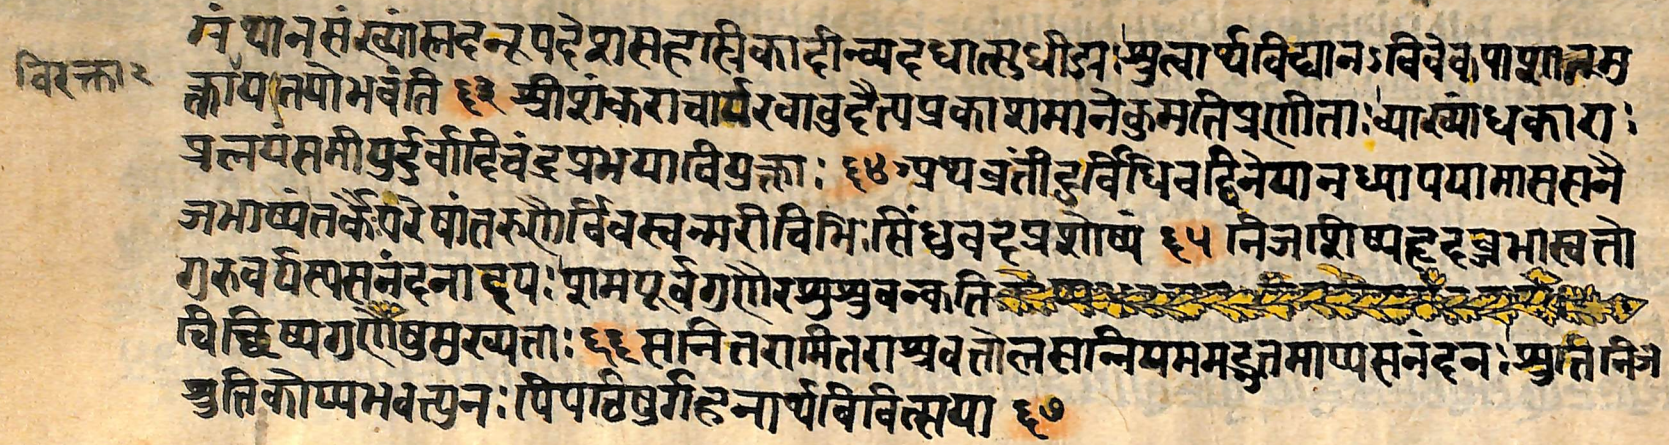 मंथानसंख्यांस्तदनूपदेशसहास्रिकादीन्व्यदधात्सुधीड्यः श्रुत्वार्थविद्यानऽविवेकपाशान्मु
विरक्ता २
क्ता यतयो भवंति ६३ श्रीशंकराचार्यरवावुदैत्यप्रकाशमाने कुमतिप्रणीताः व्याख्यांधकाराः
प्रलयं समीयुर्दुर्वादिचंद्रप्रभयावियुक्ताः ६४ अथ व्रतींदुर्विधिवद्विनेयानध्यापयामास सनै
जभाष्यं तर्कैः परेषां तरुणैर्विवस्वन्मरीचिभिः सिंधुवदप्रशोष्यं ६५ निजशिष्यहृदब्जभास्वतो
गुरुवर्यस्य सनंदनादयः शमपूर्वगणैरशुश्रुवन्कति
चिच्छिष्यगणेषु मुख्यताः ६६ स नितरामितराश्रवतो लसन्नियममद्भुतमाप्य सनंदनः श्रुतनिज
श्रुतिकोप्यभवत्पुनः पिपठिषुर्गहनार्थविवित्सया ६७